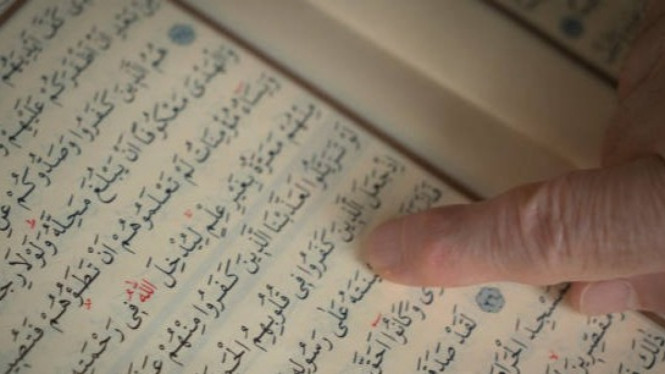 كَفَّ اَيْدِيَهُمْ
بَعْدِ اَنْ اَظْفَرَكُمْ عَلَيْهِمْ
هُمُ الَّذٖينَ كَفَرُوا وَصَدُّوكُمْ عَنِ
وَالْهَدْىَ مَعْكُوفًا اَنْ يَبْلُغَ مَحِلَّهُ وَلَوْلَا
وَنِسَاءٌ مُؤْمِنَاتٌ لَمْ تَعْلَمُوهُمْ اَنْ تَطَؤُهُمْ
مِنْهُمْ مَعَرَّةٌ بِغَيْرِ عِلْمٍ لِيُدْخِلَ اللّٰهُ فٖى رَحْمَتِهٖ
لَوْ تَزَيَّلُوا لَعَذَّبْنَا الَّذٖينَ كَفَرُوا مِنْهُمْ
اِذْ جَعَلَ الَّذٖينَ كَفَرُوا فٖى قُلُوبِهِمُ
عَلٰى رَسُولِهٖ
وَكَانُوا اَحَقَّ
لَقَدْ صَدَقَ